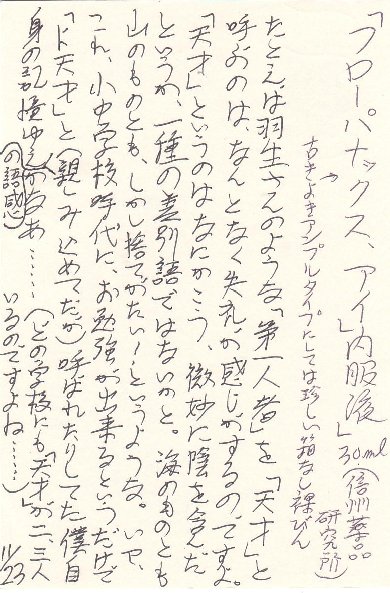 「フローパナックス、アイ」内服液」30ml（信州薬品
研究所）
古きよきアンプルタイプにしては珍しい箱なし裸びん
たとえば羽生さんのような「第一人者」を「天才」と
呼ぶのは、なんとなく失礼な感じがするのですよ。
「天才」というのはなにかこう、微妙に陰を含んだ
というか、一種の差別語ではないかと。海のものとも
山のものとも、しかし捨てがたい！というような。いや、
これ、小中学校時代に、お勉強が出来るというだけで
「ド天才」と（親しみ込めてだか）呼ばれたりしてた僕自
身の記憶ゆえ（の語感）かなあ……（どの学校にも「天才」が二、三人
いるのですよね……）
11/23